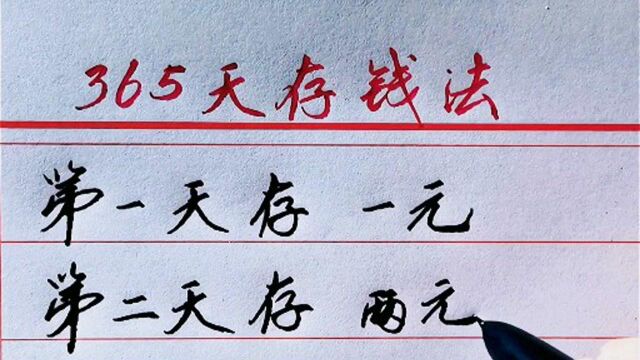 365天存钱法
第一天存 一元
第二天存 两元